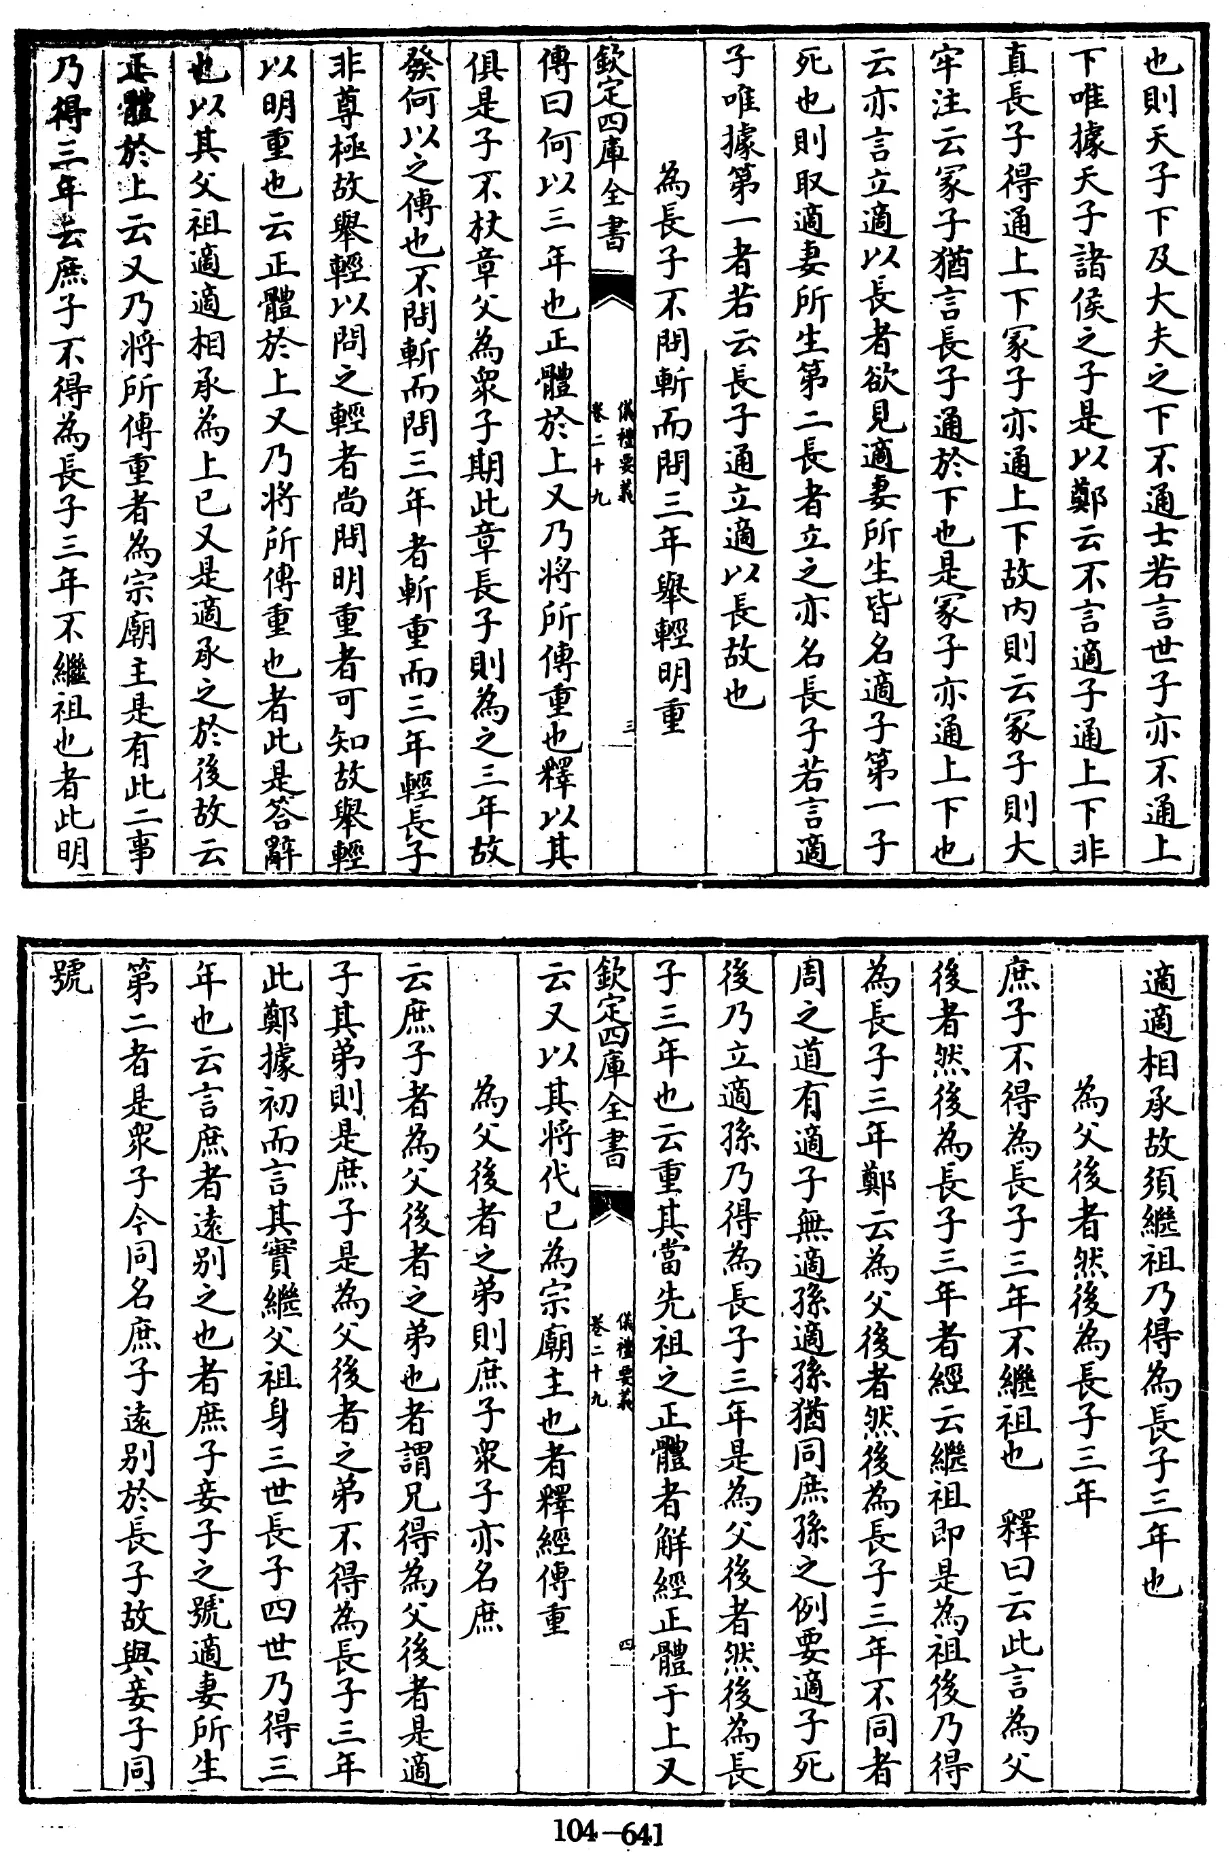 也則天子下及大夫之下不通士若言世子亦不通上
下唯據天子諸侯之子是以鄭云不言適子通上下非
直長子得通上下冢子亦通上下故内則云冢子則大
牢注云冢子猶言長子通於下也是冢子亦通上下也
云亦言立適以長者欲見適妻所生皆名適子第一子
死也則取適妻所生第二長者立之亦名長子若言適
子唯據第一者若云長子通立適以長故也
為長子不問斬而問三年舉輕明重
欽定四庫全書
儀禮要義
卷二十九
三
傳曰何以三年也正體於上又乃將所傳重也釋以其
俱是子不杖章父為衆子期此章長子則為之三年故
發何以之傳也不問斬而問三年者斬重而三年輕長子
非尊極故舉輕以問之輕者尚問明重者可知故舉輕
以明重也云正體於上又乃將所傳重也者此是答辭
也以其父祖適適相承為上已又是適承之於後故云
正體於上云又乃將所傳重者為宗廟主是有此二事
乃得三年云庶子不得為長子三年不繼祖也者此明
適適相承故須繼祖乃得為長子三年也
為父後者然後為長子三年
庶子不得為長子三年不繼祖也　釋曰云此言為父
後者然後為長子三年者經云繼祖即是為祖後乃得
為長子三年鄭云為父後者然後為長子三年不同者
周之道有適子無適孫適孫猶同庶孫之例要適子死
後乃立適孫乃得為長子三年是為父後者然後為長
子三年也云重其當先祖之正體者解經正體于上又
欽定四庫全書
儀禮要義
卷二十九
四
云又以其將代已為宗廟主也者釋經傳重
為父後者之弟則庶子衆子亦名庶
云庶子者為父後者之弟也者謂兄得為父後者是適
子其弟則是庶子是為父後者之弟不得為長子三年
此鄭據初而言其實繼父祖身三世長子四世乃得三
年也云言庶者遠别之也者庶子妾子之號適妻所生
第二者是衆子今同名庶子遠别於長子故與妾子同
號
104-641